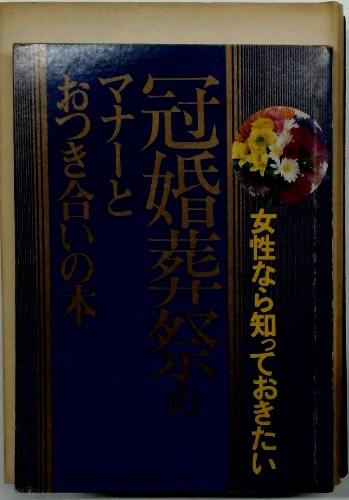 女性なら知っておきたい
冠婚葬祭の
マナーと
おつき合いの本